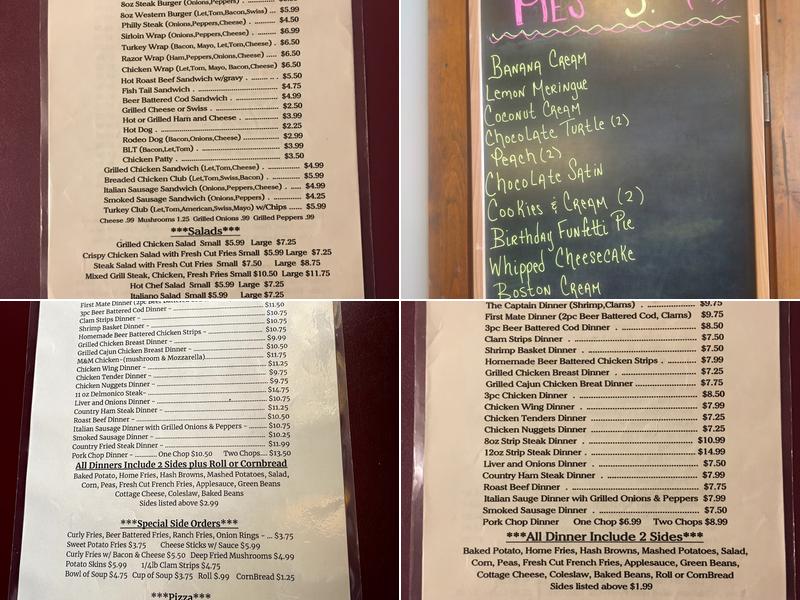 8oz Steak Burger (Onions,Peppers,Cheese) .
8oz Western Burger (Let,Tom,Bacon,Swiss) . $5.99
Philly Steak (Onions,Peppers,Cheese) ......... $4.50
Sirloin Wrap (Onions,Peppers,Cheese) ......... $6.99
Turkey Wrap (Bacon, Mayo, Let,Tom,Cheese) . $6.50
Razor Wrap (Ham,Peppers,Onions,Cheese) ..... $6.50
Chicken Wrap (Let,Tom, Mayo, Bacon,Cheese) $6.50
Hot Roast Beef Sandwich w/gravy . ........ .. . $5.50
Fish Tail Sandwich . .............................. $4.75
Beer Battered Cod Sandwich . .................. $4.99
Grilled Cheese or Swiss . ......................... $2.50
Hot or Grilled Ham and Cheese . ............... $3.99
Hot Dog . ........................................... $2.25
Rodeo Dog (Bacon,Onions,Cheese) ............. $2.99
BLT (Bacon,Let,Tom) . ............................ $3.99
Chicken Patty . .................................... $3.50
Grilled Chicken Sandwich (Let,Tom,Cheese) . ........ $4.99
Breaded Chicken Club (Let,Tom,Swiss,Bacon) . ...... $5.99
Italian Sausage Sandwich (Onions,Peppers,Cheese) . ..... $4.99
Smoked Sausage Sandwich (Onions,Peppers) . ....... $4.25
Turkey Club (Let,Tom,American,Swiss,Mayo) w/Chips ...... $5.99
Cheese .99 Mushrooms 1.25 Grilled Onions .99 Grilled Peppers .99
***Salads***
Grilled Chicken Salad Small $5.99 Large $7.25
Crispy Chicken Salad with Fresh Cut Fries Small $5.99 Large $7.25
Steak Salad with Fresh Cut Fries Small $7.50 Large $8.75
Mixed Grill Steak, Chicken, Fresh Fries Small $10.50 Large $11.75
Hot Chef Salad Small $5.99 Large $7.25
Italiano Salad Small $5.99 Large $7.25
PIES
Banana Cream
Lemon Meringue
Coconut Cream
Chocolate Turtle (2)
Peach (2)
Chocolate Satin
Cookies & Cream (2)
Birthday Funfetti Pie
Whipped Cheesecake
Boston Cream
First Mate Dinner (2pc Beer Battered Cod, Clams)
3pc Beer Battered Cod Dinner - ........ $11.50
Clam Strips Dinner - ........ $10.75
Shrimp Basket Dinner - ........ $10.75
Homemade Beer Battered Chicken Strips - ........ $10.75
Grilled Chicken Breast Dinner - ........ $9.99
Grilled Cajun Chicken Breast Dinner - ........ $10.50
M&M Chicken-(mushroom & Mozzarella)........ $11.75
Chicken Wing Dinner - ........ $11.25
Chicken Tender Dinner - ........ $9.75
Chicken Nuggets Dinner - ........ $9.75
11 oz Delmonico Steak- ........ $14.75
Liver and Onions Dinner - ........ $10.75
Country Ham Steak Dinner - ........ $11.25
Roast Beef Dinner - ........ $10.50
Italian Sausage Dinner with Grilled Onions & Peppers - ........ $10.75
Smoked Sausage Dinner - ........ $10.25
Country Fried Steak Dinner - ........ $11.99
Pork Chop Dinner - ........ One Chop $10.50 Two Chops.... $13.50
All Dinners Include 2 Sides plus Roll or Cornbread
Baked Potato, Home Fries, Hash Browns, Mashed Potatoes, Salad,
Corn, Peas, Fresh Cut French Fries, Applesauce, Green Beans
Cottage Cheese, Coleslaw, Baked Beans
Sides listed above $2.99
***Special Side Orders***
Curly Fries, Beer Battered Fries, Ranch Fries, Onion Rings - ... $3.75
Sweet Potato Fries $3.75 Cheese Sticks w/ Sauce $5.99
Curly Fries w/ Bacon & Cheese $5.50 Deep Fried Mushrooms $4.99
Potato Skins $5.99 1/4lb Clam Strips $4.75
Bowl of Soup $4.75 Cup of Soup $3.75 Roll $.99 CornBread $1.25
***Pizza***
The Captain Dinner (Shrimp,Clams) . ........ $9.75
First Mate Dinner (2pc Beer Battered Cod, Clams) $9.75
3pc Beer Battered Cod Dinner . ........ $8.50
Clam Strips Dinner . ........ $7.50
Shrimp Basket Dinner . ........ $7.50
Homemade Beer Battered Chicken Strips . ........ $7.99
Grilled Chicken Breast Dinner . ........ $7.25
Grilled Cajun Chicken Breat Dinner ........ $7.75
3pc Chicken Dinner . ........ $8.50
Chicken Wing Dinner . ........ $7.99
Chicken Tenders Dinner . ........ $7.25
Chicken Nuggets Dinner . ........ $7.25
8oz Strip Steak Dinner . ........ $10.99
12oz Strip Steak Dinner . ........ $14.99
Liver and Onions Dinner . ........ $7.50
Country Ham Steak Dinner . ........ $7.99
Roast Beef Dinner . ........ $7.75
Italian Sauge Dinner wih Grilled Onions & Peppers $7.99
Smoked Sausage Dinner . ........ $7.50
Pork Chop Dinner One Chop $6.99 Two Chops $8.99
***All Dinner Include 2 Sides***
Baked Potato, Home Fries, Hash Browns, Mashed Potatoes, Salad,
Corn, Peas, Fresh Cut French Fries, Applesauce, Green Beans,
Cottage Cheese, Coleslaw, Baked Beans, Roll or CornBread
Sides listed above $1.99